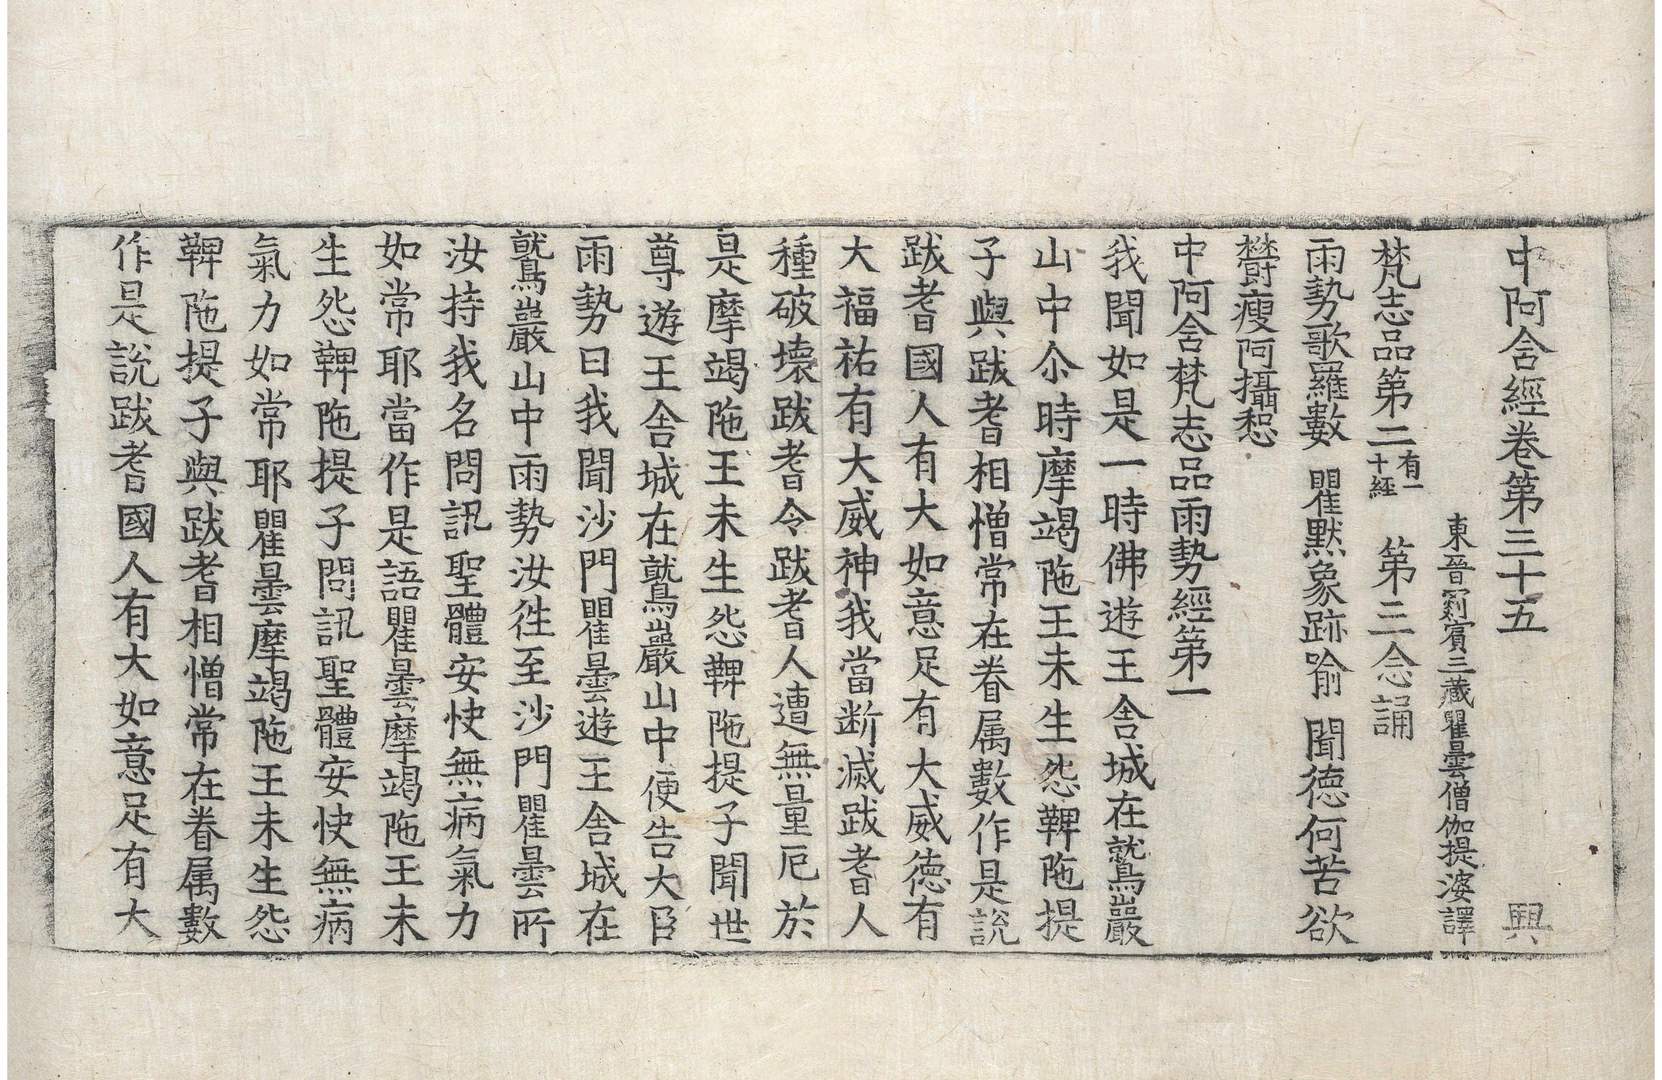 中阿含經卷第三十五　興
東晉罽賓三藏瞿曇僧伽提婆譯
梵志品第二有一十經　第三念誦
雨勢歌羅數　瞿默象跡喻　聞德何苦欲
鬱瘦阿攝惒
中阿含梵志品雨勢經第一
我聞如是一時佛遊王舍城在鷲巖
山中尒時摩竭陁王未生怨鞞陁提
子與跋耆相憎常在眷属數作是說
跋耆國人有大如意足有大威德有
大福祐有大威神我當斷滅跋耆人
種破壞跋耆令跋耆人遭無量厄於
是摩竭陁王未生怨鞞陁提子聞世
尊遊王舍城在鷲巖山中便告大臣
雨勢曰我聞沙門瞿曇遊王舍城在
鷲巖山中雨勢汝徃至沙門瞿曇所
汝持我名問訊聖體安快無病氣力
如常耶當作是語瞿曇摩竭陁王未
生怨鞞陁提子問訊聖體安快無病
氣力如常耶瞿曇摩竭陁王未生怨
鞞陁提子與跋耆相憎常在眷属數
作是說跋耆國人有大如意足有大